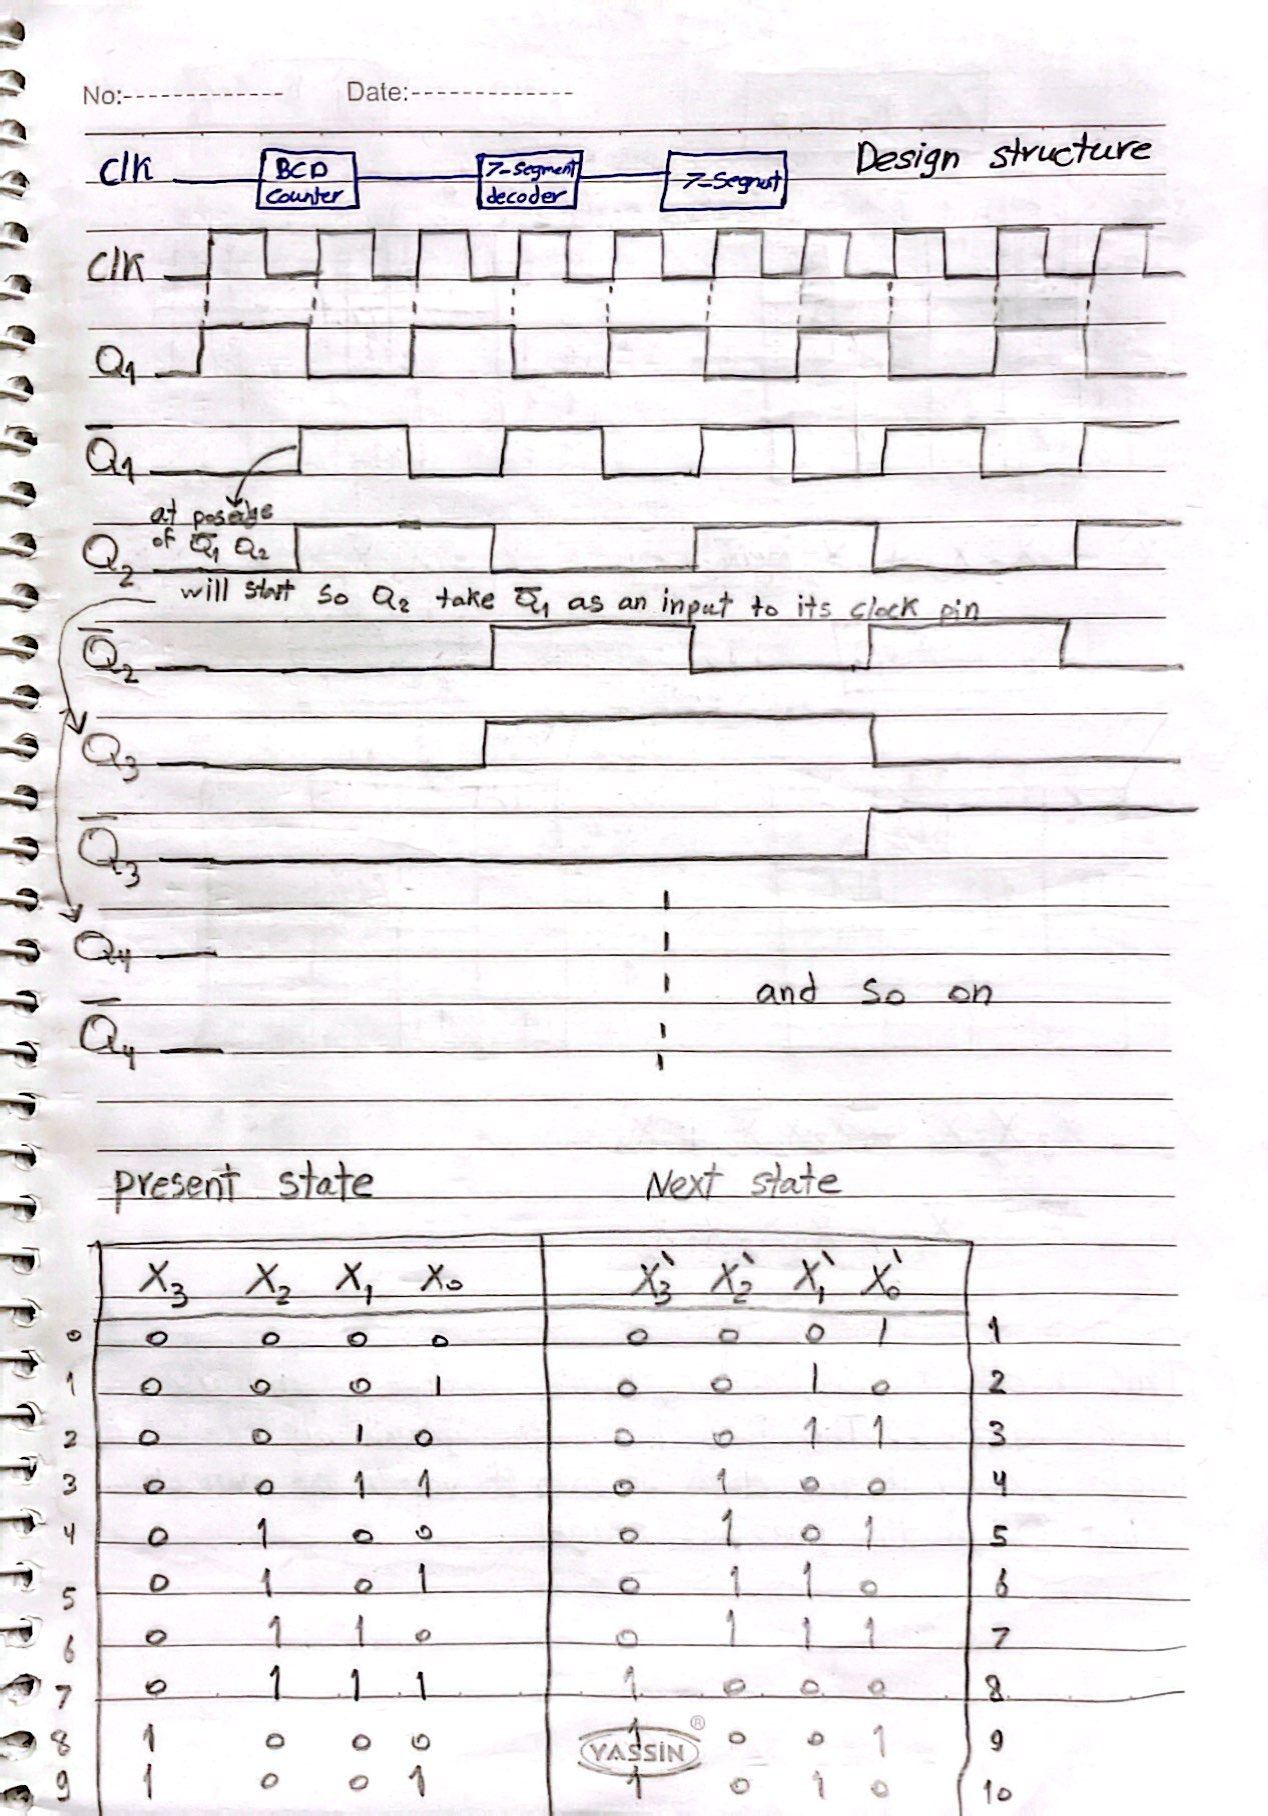 No:-------------- Date:--------------
clk BCD counter 7-segment decoder 7-Segmut Design structure
clk
Q1
Q̅1
at posedge
of Q̅1 Q2
Q2
will start so Q2 take Q̅1 as an input to its clock pin
Q̅2
Q3
Q̅3
Q4
and so on
Q̅4
present state Next state
X3 X2 X1 X0 X3' X2' X1' X0'
0 0 0 0 0 0 0 0 1 1
1 0 0 0 1 0 0 1 0 2
2 0 0 1 0 0 0 1 1 3
3 0 0 1 1 0 1 0 0 4
4 0 1 0 0 0 1 0 1 5
5 0 1 0 1 0 1 1 0 6
6 0 1 1 0 0 1 1 1 7
7 0 1 1 1 1 0 0 0 8
8 1 0 0 0 1 0 0 1 9
YASSIN ®
9 1 0 0 1 1 0 1 0 10